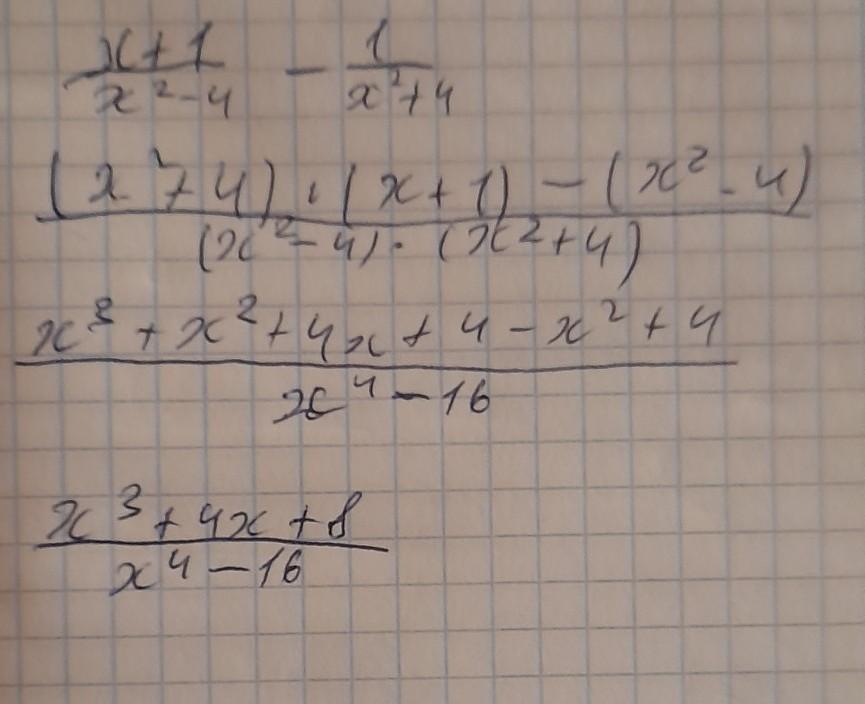 (x+1)/(x²-4) - 1/(x²+4)
((x²+4)·(x+1)-(x²-4))/((x²-4)·(x²+4))
(x³+x²+4x+4-x²+4)/(x⁴-16)
(x³+4x+8)/(x⁴-16)